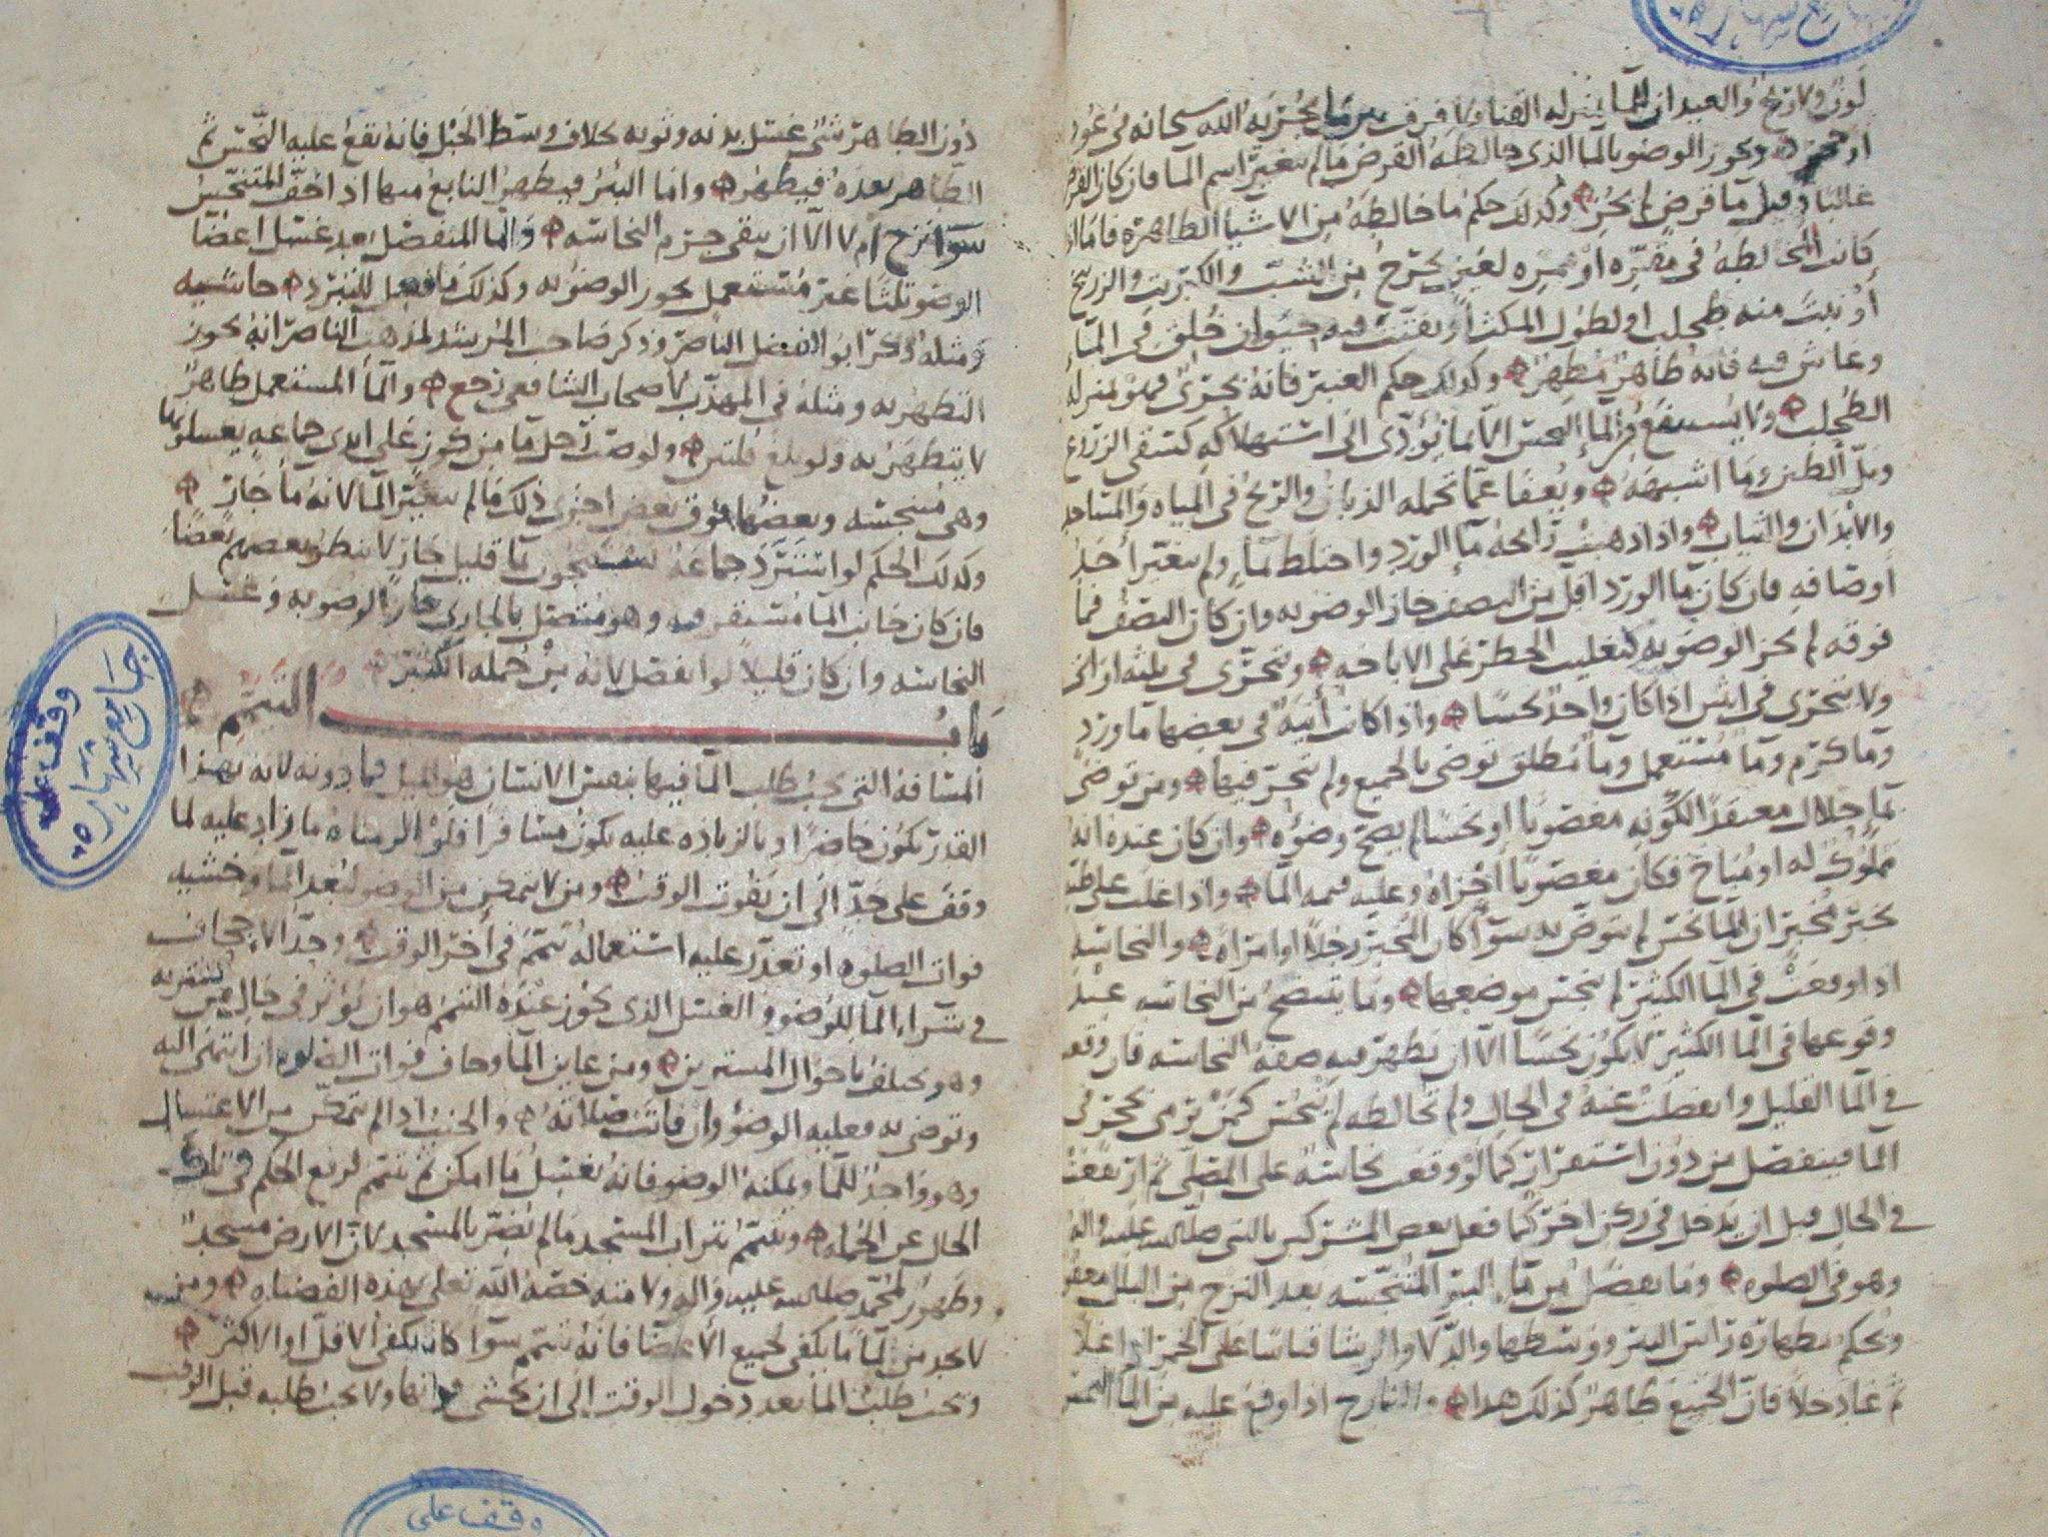 لون ولا ريح والعيدان للماء بمنزله القنا ولا فرق بين ما يجريه الله سبحانه في عود
او حجر ويجوز الوضو بالما الذي خالطه القرض ما لم يتغير اسم الما فان كان القرض
غالبا وقيل ما قرض لم يجز وكذلك حكم ما خالطه من الاشيا الطاهره فاما اذا
كانت المخالطه في مقره او ممره لغير يخرج من الشب والكبريت والزرنيخ
او نبت منه طحلب او لطول المكث او تفتت فيه حيوان خلق في الما
وعاش فيه فانه طاهر مطهر وكذلك حكم العنبر فانه بحري فهو بمنزله
الطحلب ولا يستنفع من الما النجس الا بما يؤدي الى استهلاكه كسقي الزرع
وبل الطين وما اشبهه ويعفا عما تحمله الذبان والريح في المياه والمساجد
والابدان والثياب واذا ذهبت رائحه ما الورد واختلط بما ولم يتغير احد
اوصافه فان كان ما الورد اقل من النصف جاز الوضو به وان كان النصف فما
فوقه لم يجز الوضو به لتغليب الحظر على الاباحه ويتحرى في ثلثه اوان
ولا يتحرى في اثنين اذا كان واحد نجسا واذا كانت آنيه في بعضها ما ورد
وما كرم وما مستعمل وما مطلق توضى بالجميع ولم يتحر فيها ومن توضى
بما حلال معتقدا لكونه مغصوبا او نجسا لم يصح وضؤه وان كان عنده انه
مملوك له او مباح فكان مغصوبا اجزاه وعليه قيمه الما واذا غلب على ظنه
بخبر مخبر ان الما نجس لم يتوض به سوا كان المخبر رجلا او امراه والنجاسه
اذا وقعت في الما الكثير لم ينجس موضعها وما ينتضح من النجاسه عند
وقوعها في الما الكثير لا يكون نجسا الا ان يظهر فيه صفه النجاسه فان وقعت
في الما القليل وانفصلت عنه في الحال ولم تخالطه لم ينجس كمن يرمي بحجر في
الما فينفصل من دون استقرار كما لو وقعت نجاسه على المصلي ثم ارتفعت
في الحال قبل ان يدخل في ركن اخر كما فعل بعض المشركين بالنبي صلى الله عليه واله
وهو في الصلوه وما يفضل من ما البئر المتنجسه بعد النزح من البلل معفو
ويحكم بطهاره راس البئر ووسطها والدلا والرشا قياسا على الخمر اذا غلا
ثم عاد خلا فان الجميع طاهر كذلك هذا والنارح اذا وقع عليه من الما النجس
دون الطاهر شي غسل بدنه وثوبه بخلاف وسط الحبل فانه يقع عليه النجس ثم
الطاهر بعده فيطهر واما البئر فيطهر النابع منها اذا خف المتنجس
سوا نزح ام لا الا ان يبقى جرم النجاسه والما المنفصل بعد غسل اعضا
الوضو ثلثا غير مستعمل يجوز الوضو به وكذلك ما فعل للتبرد حاشيه
ومثله ذكر ابو الفضل الناصر وذكر صاحب المرشد لمذهب الناصر انه يجوز
التطهر به ومثله في المهذب لاصحاب الشافعي رجع والما المستعمل طاهر
لا يتطهر به ولو بلغ قلتين ولو صب رجل ما من كوز على ايدي جماعه يغسلونها
وهي متنجسه وبعضها فوق بعض اجزى ذلك ما لم يتغير الما لانه ما جار
وكذلك الحكم لو استبرد جماعه يستنجون بما قليل جاز لا ينظر بعضهم بعضا
فان كان جانب الما مستقر فيه وهو متصل بالجاري جاز الوضو به وغسل
النجاسه وان كان قليلا لو انفصل لانه من جمله الكثير
باب التيمم
المسافه التي يجب طلب الما فيها بنفس الانسان هو الميل فما دونه لانه بهذا
القدر يكون حاضرا وبالزياده عليه يكون مسافرا فلو الزمناه ما زاد عليه لما
وقف على حد الى ان يفوت الوقت ومن لا يتمكن من الوضو لبعد الما وخشيه
فوات الصلوه او تعذر عليه استعماله تيمم في اخر الوقت وحد الاجحاف
في شراء الما للوضو والغسل الذي يجوز عنده التيمم هو ان يؤثر في حال من يشتريه
وهو يختلف باحوال المشترين ومن عاين الما وخاف فوات الصلوه ان انتهى اليه
وتوضى به فعليه الوضؤ وان فاتت صلاته والجنب اذا لم يتمكن من الاغتسال
وهو واجد للما ويمكنه الوضو فانه يغسل ما امكن ثم تيمم لرفع الحكم في تلك
الحال عن الجمله وتيمم بتراب المسجد ما لم يضر بالمسجد لان الارض مسجد
وطهور لمحمد صلى الله عليه واله ولامته خصه الله تعلى بهذه الفضيله ومن
لا يجد من الما ما يكفي لجميع الاعضا فانه تيمم سوا كان يكفي الاقل او الاكثر
ويجب طلب الما بعد دخول الوقت الى ان يخشى فواتها ولا يجب طلبه قبل الوقت
وقف على
جامع شهاره
وقف على